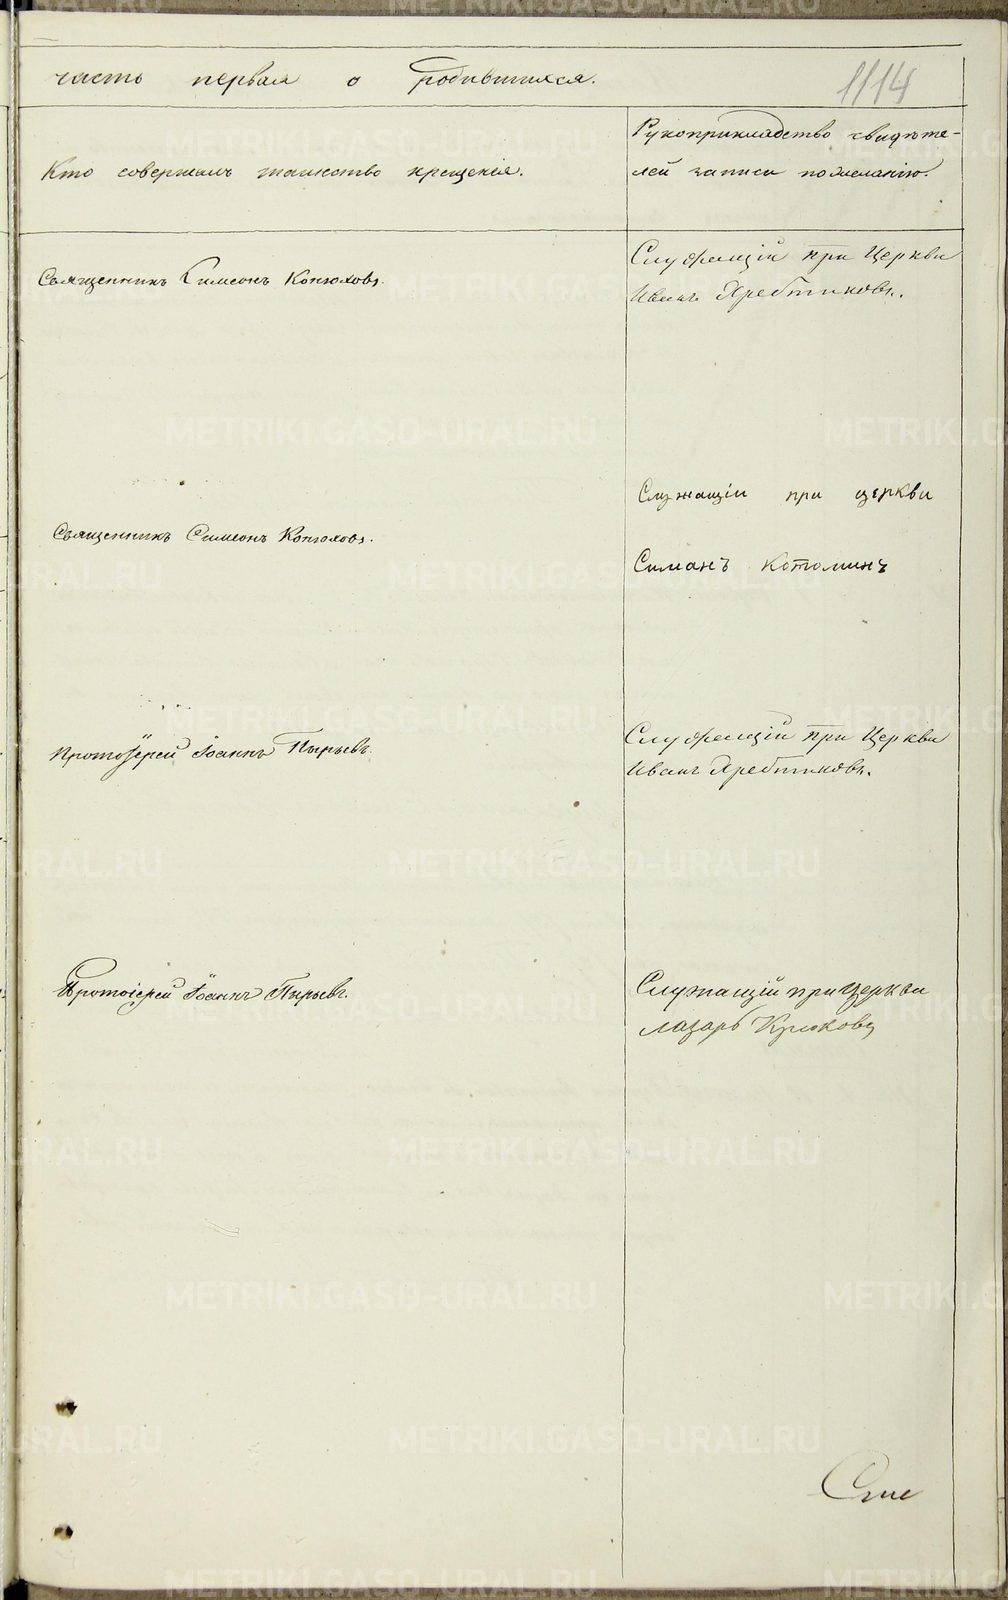 часть первая о родившихся.
1114
Кто совершалъ таинство крещенія.
Рукоприкладство свидѣте-
лей записи по желанію.
Священникъ Симеонъ Конюховъ.
Служащій при Церкви
Иванъ Хребтиковъ.
Священникъ Симеонъ Конюховъ.
Служащіи при церкви
Симанъ Котоминъ
Протоіерей Іоаннъ Пырьевъ
Служащій при Церкви
Иванъ Хребтиковъ.
Протоіерей Іоаннъ Пырьевъ.
Служащій при Церкви
Лазарь Крюковъ
METRIKI.GASO-URAL.RU